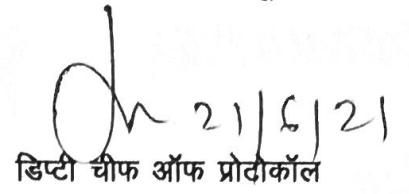 21/6/21
डिप्टी चीफ ऑफ प्रोटोकॉल